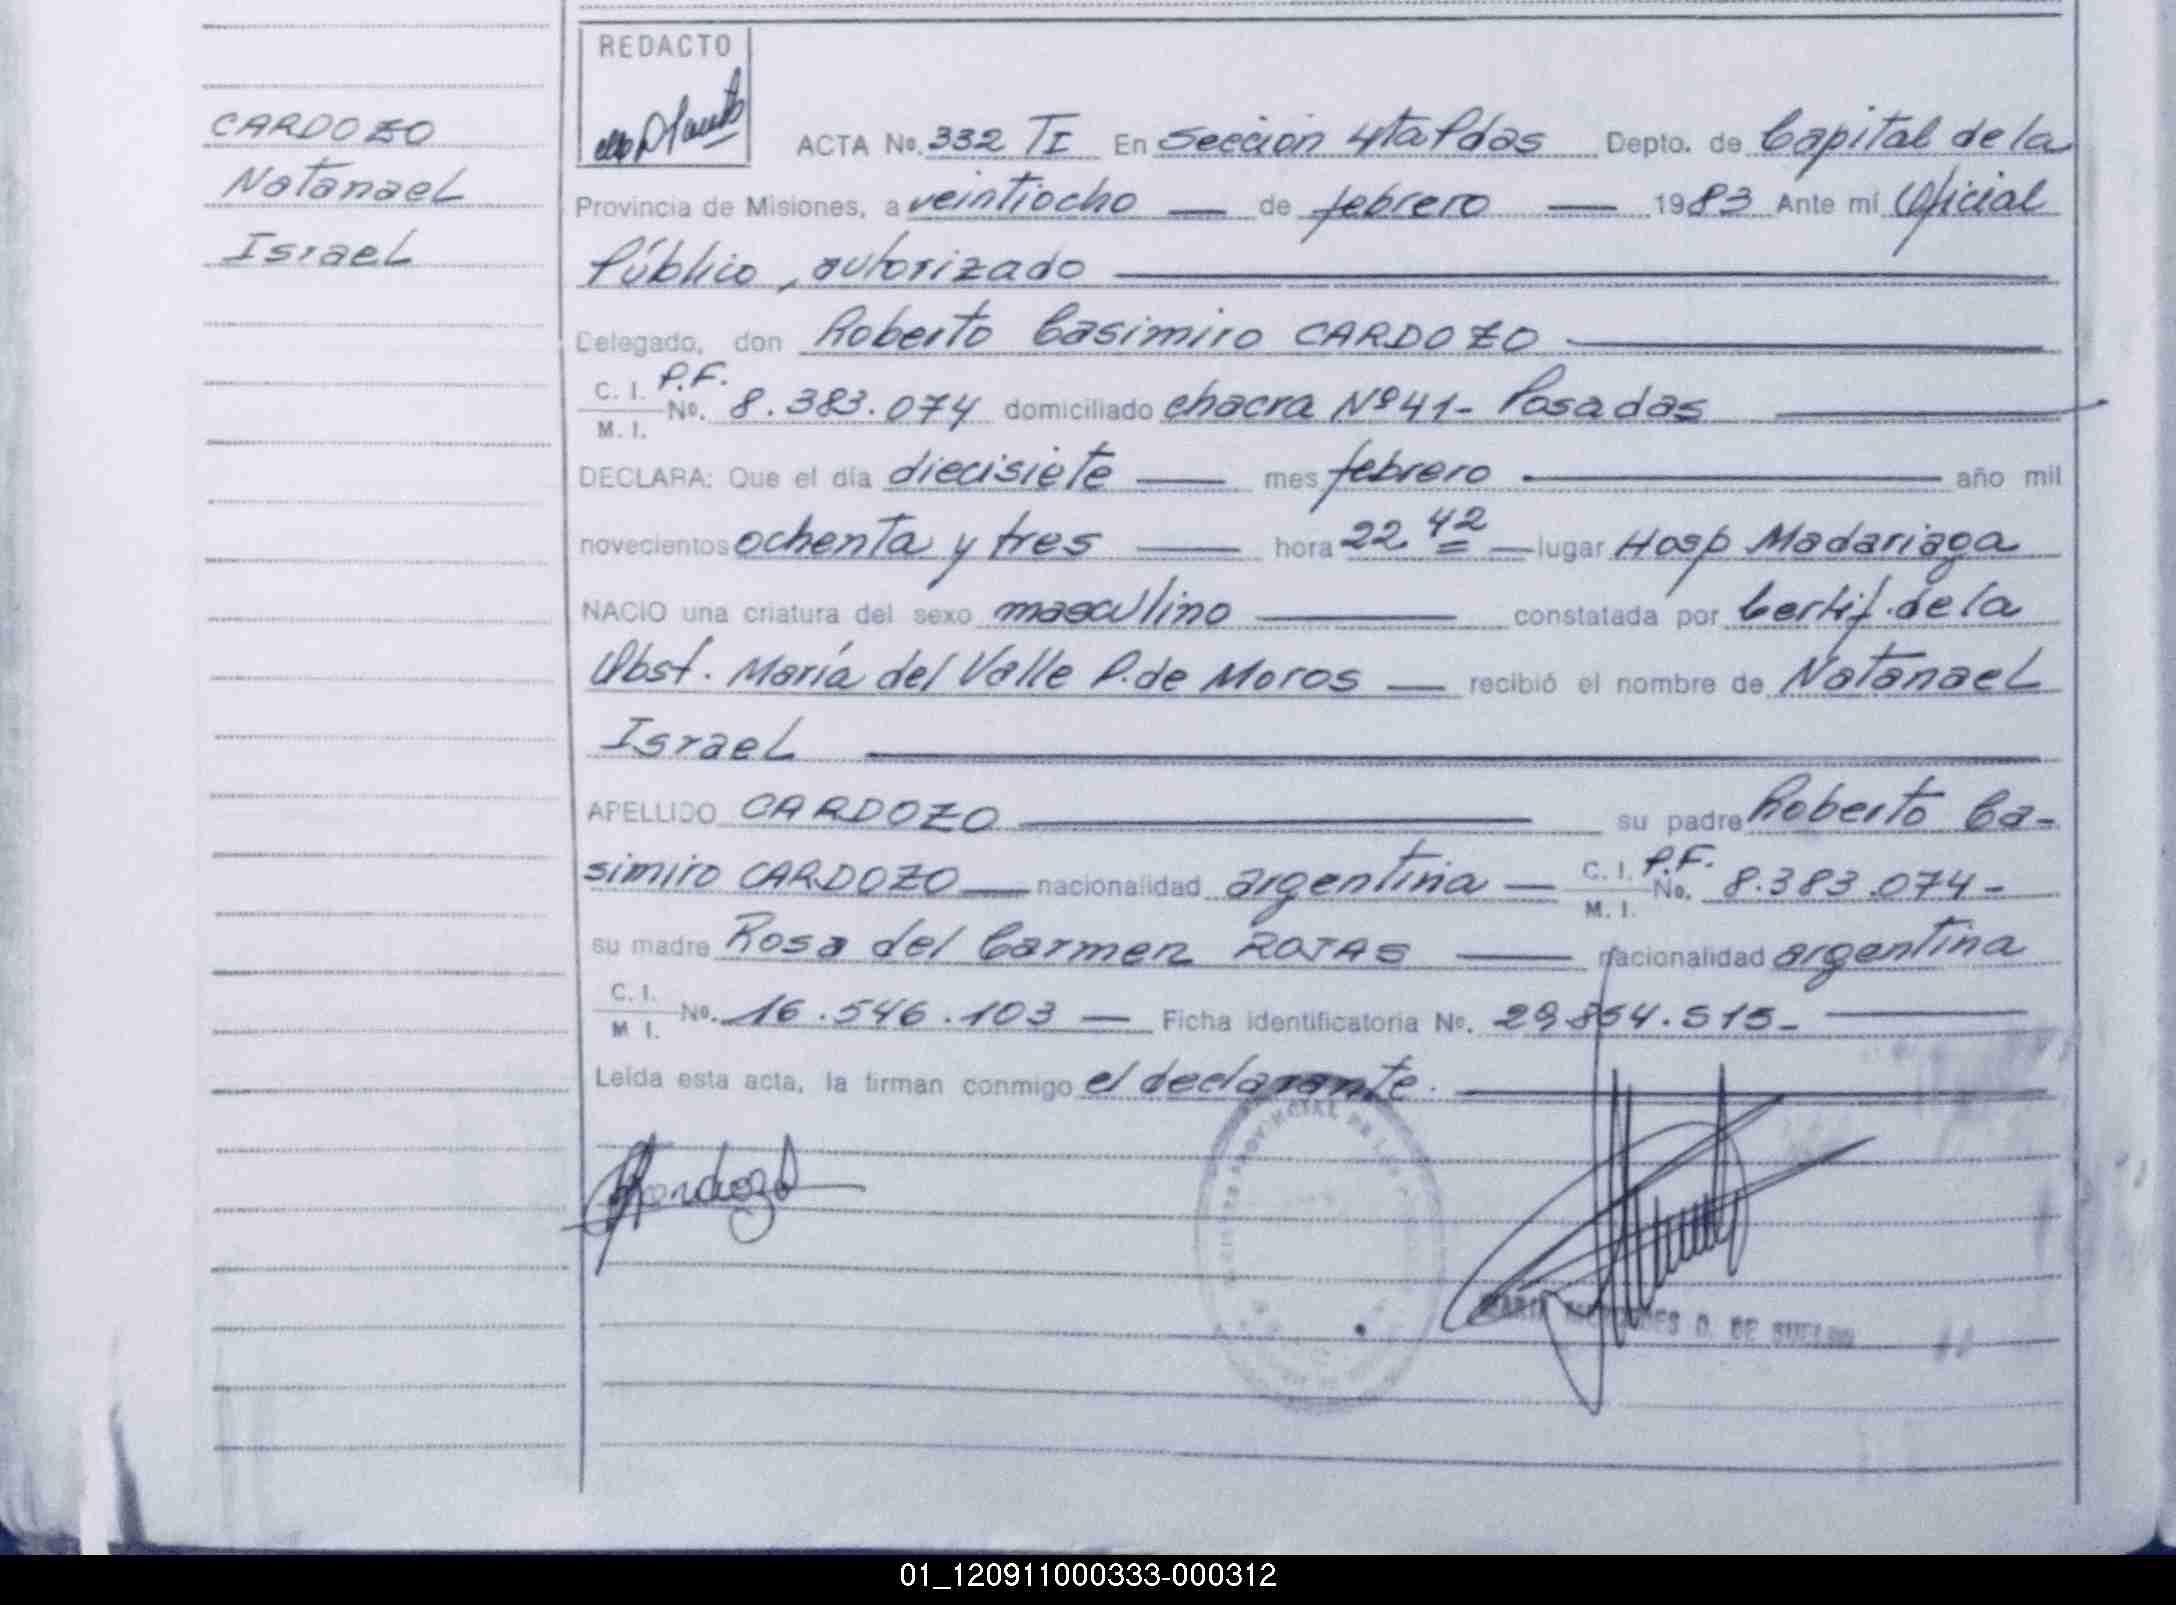 REDACTO
CARDOZO
Natanael
Israel
ACTA No. 332 TI En Sección 4ta Pdas Depto. de Capital de la
Provincia de Misiones, a veintiocho — de febrero — 1983 Ante mí Oficial
Público, autorizado
Delegado, don Roberto Casimiro CARDOZO
C. I. P.F.
M. I. No. 8.383.074 domiciliado chacra Nº 41- Posadas
DECLARA: Que el día diecisiete — mes febrero — año mil
novecientos ochenta y tres — hora 22 42 — lugar Hosp Madariaga
NACIO una criatura del sexo masculino — constatada por Certif. de la
Obst. María del Valle P. de Moros — recibió el nombre de Natanael
Israel
APELLIDO CARDOZO — su padre Roberto Ca-
simiro CARDOZO — nacionalidad argentina — C. I. P.F. M. I. No. 8.383.074-
su madre Rosa del Carmen ROJAS — nacionalidad argentina
C. I. M I. No. 16.546.103 — Ficha identificatoria No. 29.854.515-
Leída esta acta, la firman conmigo el declarante.
Cardozo
DE
01_120911000333-000312